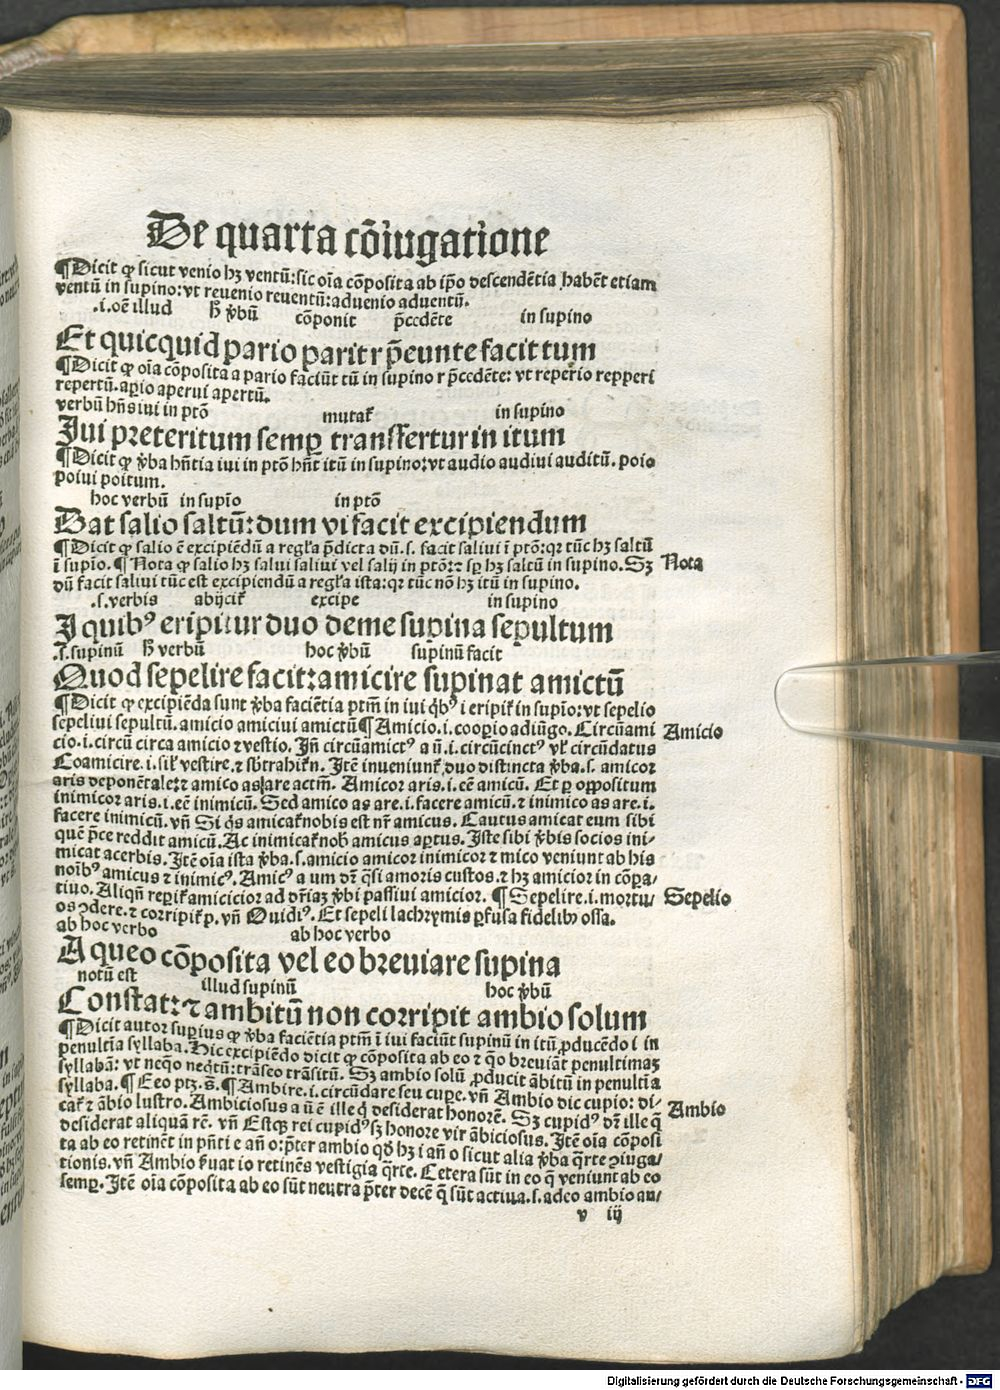 De quarta cõiugatione
¶Dicit ꝙ sicut venio hꝫ ventũ:sic oĩa cõposita ab ip̃o descendẽtia habẽt etiam
ventũ in supino:vt reuenio reuentũ:aduenio aduentũ.
.i.oẽ illud h̃ v̾bũ cõponit p̃cedẽte in supino
Et quicquid pario parit r p̃eunte facit tum
¶Dicit ꝙ oĩa cõposita a pario faciũt tũ in supino r p̃cedẽte: vt reperio repperi
repertũ.aperio aperui apertũ.
verbũ hñs iui in ptõ mutat᷑ in supino
Jui preteritum semp̱ transfertur in itum
¶Dicit ꝙ v̾ba hñtia iui in ptõ hñt itũ in supino:vt audio audiui auditũ. polo
poiui poitum.
hoc verbũ in supĩo in ptõ
Dat salio saltũ:dum vi facit excipiendum
¶Dicit ꝙ salio ẽ excipiẽdũ a regl'a p̃dicta dũ.s. facit saliui ĩ ptõ:qꝛ tũc hꝫ saltũ
ĩ supĩo. ¶ Nota ꝙ salio hꝫ salui saliui vel salij in ptõ:⁊ sp̱ hꝫ saltũ in supino. Sꝫ Nota
dũ facit saliui tũc est excipiendũ a regl'a ista:qꝛ tũc nõ hꝫ itũ in supino.
.s.verbis abijcit᷑ excipe in supino
J quibꝰ eripitur duo deme supina sepultum
.i.supinũ h̃ verbũ hoc v̾bũ supinũ facit
Quod sepelire facit:amicire supinat amictũ
¶Dicit ꝙ excipiẽda sunt v̾ba faciẽtia ptm̃ in iui q̃bꝰ i eripit᷑ in supĩo:vt sepelio
sepeliui sepultũ.amicio amiciui amictũ¶Amicio.i.coopio adiũgo. Circũami Amicio
cio.i.circũ circa amicio ⁊ vestio. Jñ circũamictꝰ a ũ.i.circũcinctꝰ vl' circũdatus
Coamicire.i.sil' vestire.⁊ sb̾trahit᷑ n. Jtẽ inueniunt᷑ duo distincta v̾ba.s. amicor
aris deponẽtale:⁊ amico as are actm̃. Amicor aris.i.eẽ amicũ. Et p̱ oppositum
inimicor aris.i.eẽ inimicũ. Sed amico as are.i.facere amicũ.⁊ inimico as are.i.
facere inimicũ. vñ Si q̃s amicat᷑ nobis est nr̃ amicus. Cautus amicat eum sibi
quẽ p̃ce reddit amicũ. Ac inimicat᷑ nob̾ amicus apertus. Jste sibi v̾bis socios ini-
micat acerbis. Jtẽ oĩa ista v̾ba.s.amicio amicor inimicor ⁊ mico veniunt ab his
noĩbꝰ amicus ⁊ inimicꝰ. Amicꝰ a um dr̃ q̃si amoris custos.⁊ hꝫ amicior in cõpa/
tiuo. Aliqñ reperit᷑ amicicior ad dr̃iaꝫ v̾bi passiui amicior. ¶ Sepelire.i.mortu/ Sepelio
os ꝯdere.⁊ corripit᷑ p. vñ Ouidiꝰ. Et sepeli lachrymis p̱fusa fidelibꝰ ossa.
ab hoc verbo ab hoc verbo
A queo cõposita vel eo breuiare supina
notũ est illud supinũ hoc v̾bũ
Constat:⁊ ambitũ non corripit ambio solum
¶Dicit autor supius ꝙ v̾ba faciẽtia ptm̃ ĩ iui faciũt supinũ in itũ ꝓducẽdo i in
penultĩa syllaba. Hic excipiẽdo dicit ꝙ cõposita ab eo ⁊ q̃o breuiãt penultimaꝫ
syllabã: vt neq̃o neq̃tũ:trãseo trãsitũ. Sꝫ ambio solũ ꝓducit ãbitũ in penultĩa
syllaba. ¶ Eeo ptꝫ.s̃. ¶ Ambire.i.circũdare seu cupe. vñ Ambio dic cupio: di-
cat᷑ ⁊ ãbio lustro. Ambiciosus a ũ ẽ ille q̃ desiderat honorẽ. Sꝫ cupidꝰ dr̃ ille q̃ Ambio
desiderat aliquã rẽ. vñ Estqꝫ rei cupidꝰ sꝫ honore vir ãbiciosus. Jtẽ oĩa cõposi
ta ab eo retinẽt in pñti e añ o:p̃ter ambio qd̾ hꝫ i añ o sicut alia v̾ba q̃rte ꝯiuga/
tionis. vñ Ambio ẜuat io retinẽs vestigia q̃rte. Cetera sũt in eo q̃ veniunt ab eo
semp̱. Jtẽ oĩa cõposita ab eo sũt neutra p̃ter decẽ q̃ sũt actiua.s.adeo ambio an/
v iij
Digitalisierung gefördert durch die Deutsche Forschungsgemeinschaft - DFG